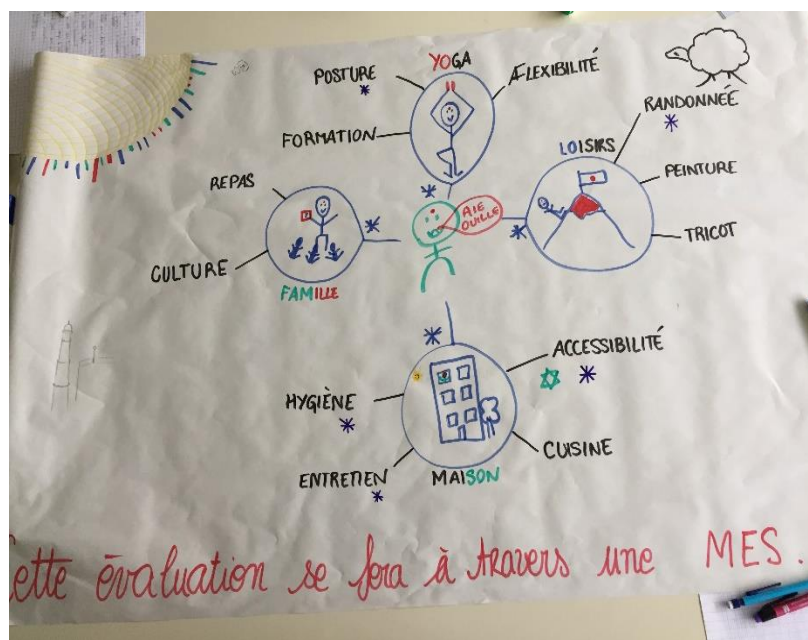 YOGA
POSTURE
FLEXIBILITÉ
FORMATION
LOISIRS
RANDONNÉE
PEINTURE
TRICOT
REPAS
CULTURE
FAMILLE
AIE
OUILLE
ACCESSIBILITÉ
HYGIÈNE
CUISINE
ENTRETIEN
MAISON
ette évaluation se fera à travers une MES.